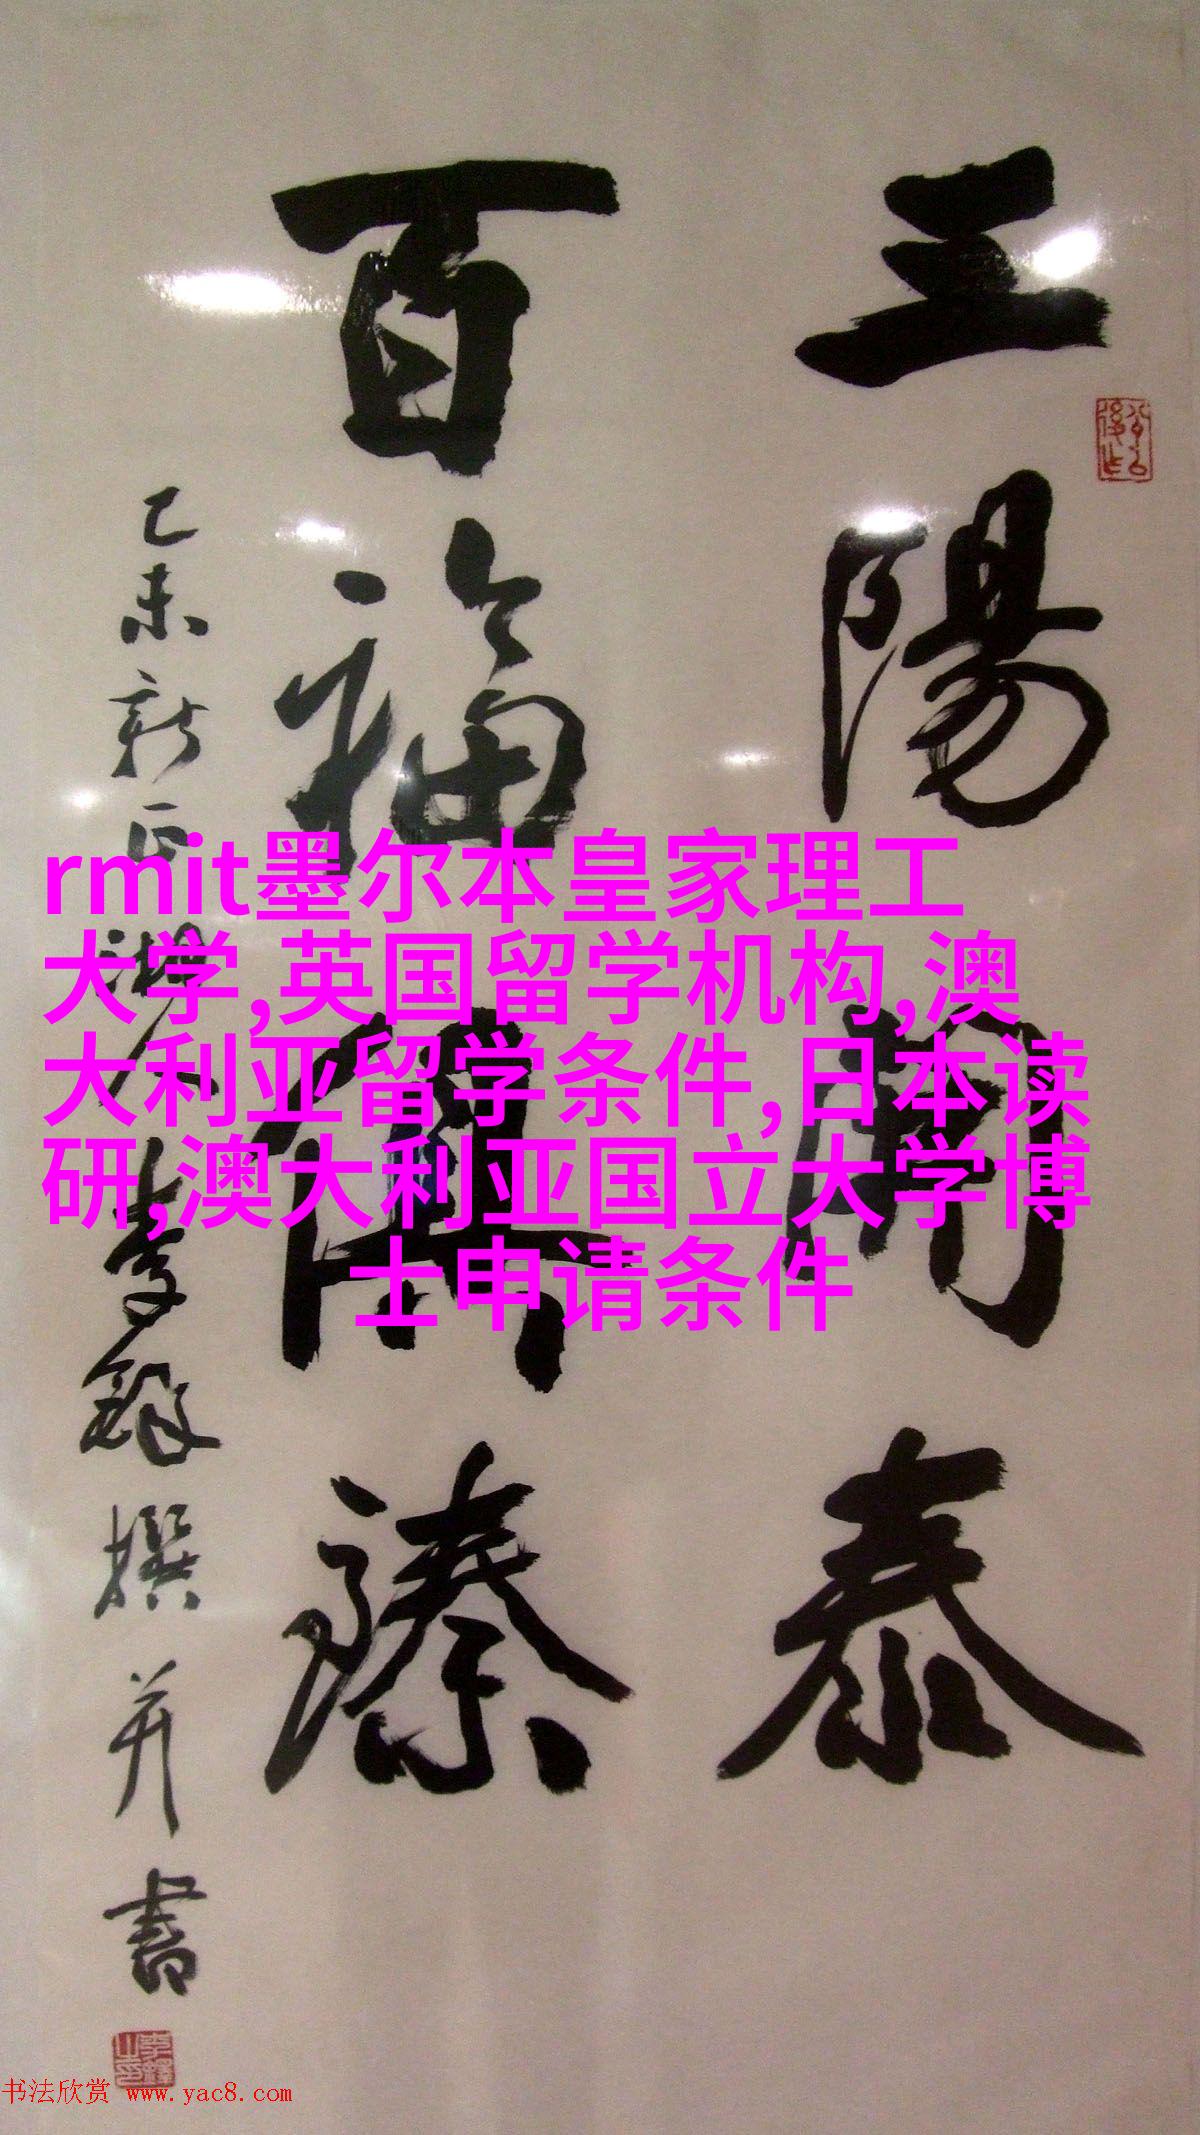 三陽開泰
百福俱臻
乙未新正湖人李鐸撰并書
rmit墨尔本皇家理工
大学,英国留学机构,澳
大利亚留学条件,日本读
研,澳大利亚国立大学博
士申请条件
书法欣赏 www.yac8.com